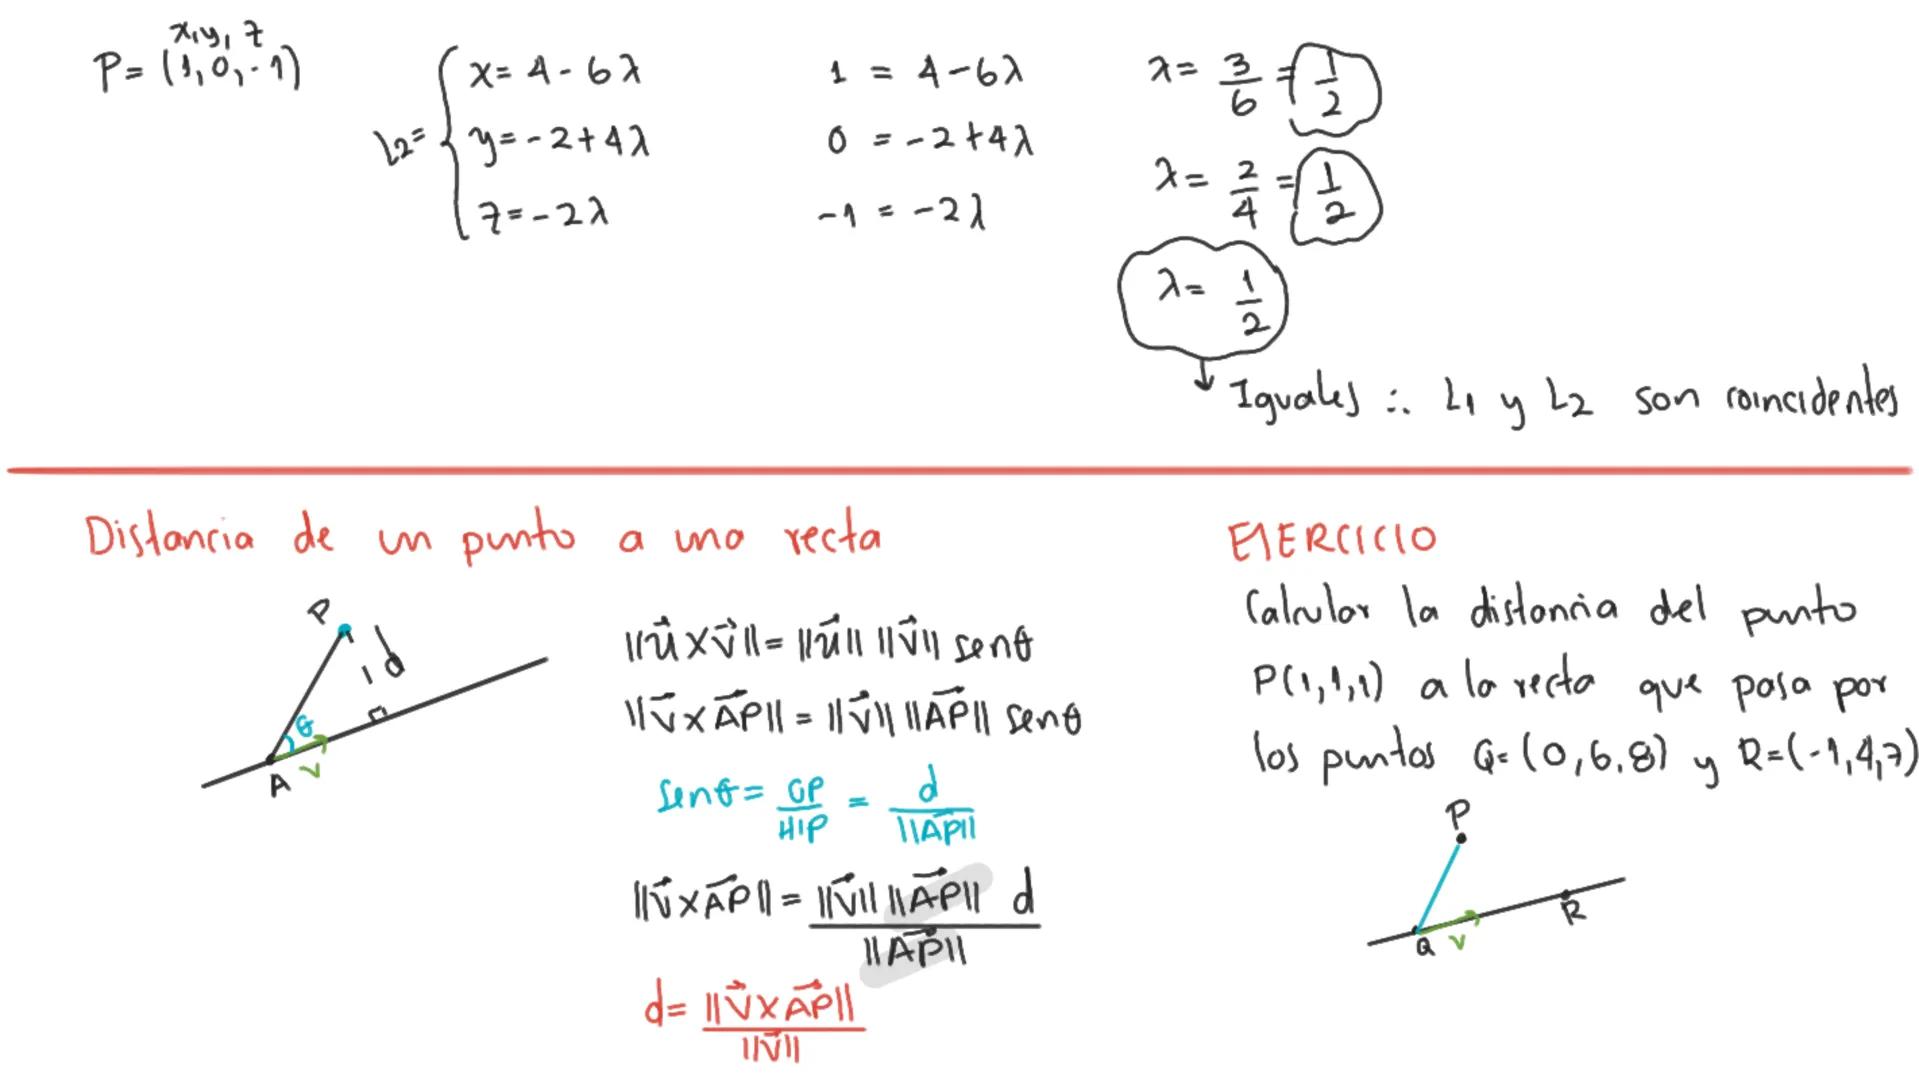 x, y, z
P= (1, 0, -1)
L2= { x= 4 - 6λ
y= -2+4λ
z= -2λ
1 = 4-6λ
0 = -2+4λ
-1 = -2λ
λ= 3/6 = 1/2
λ= 2/4 = 1/2
λ= 1/2
Iguales ∴ L1 y L2 son coincidentes
Distancia de un punto a una recta
P
d
θ
A
v
||u⃗ x v⃗|| = ||u⃗|| ||v⃗|| senθ
||v⃗ x AP⃗|| = ||v⃗|| ||AP⃗|| senθ
senθ= OP/HIP = d/||AP⃗||
||v⃗ x AP⃗|| = ||v⃗|| ||AP⃗|| d / ||AP⃗||
d= ||v⃗ x AP⃗|| / ||v⃗||
EJERCICIO
Calcular la distancia del punto
P(1,1,1) a la recta que pasa por
los puntos Q= (0,6,8) y R=(-1,4,7)
P
Q
v
R